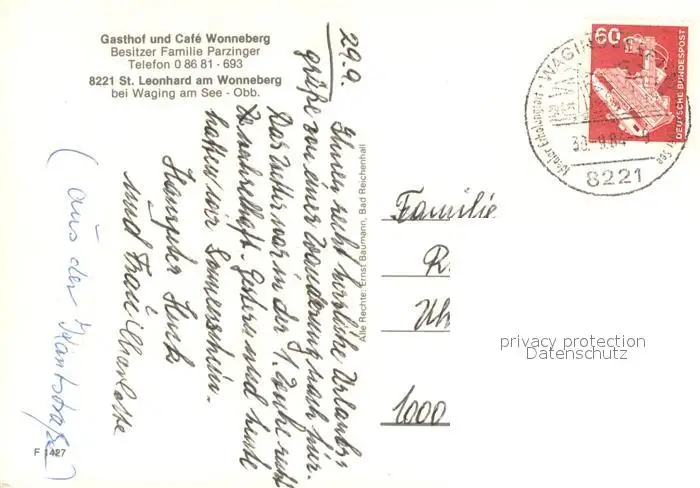 Gasthof und Café Wonneberg
Besitzer Familie Parzinger
Telefon 0 86 81 - 693
8221 St. Leonhard am Wonneberg
bei Waging am See - Obb.
29.9.
Ihnen recht herzliche Urlaubs-
grüße von einer Wanderung nach hier.
Das Wetter war in der 1. Woche recht
wechselhaft. Gestern und heute
hatten wir Sonnenschein.
und Frau Charlotte
(aus der Kantstraße)
F 1427
Alle Rechte: Ernst Baumann, Bad Reichenhall
Familie
R.
Uh
1000
60
DEUTSCHE BUNDESPOST
WAGING
30.-9.84
8221
privacy protection
Datenschutz